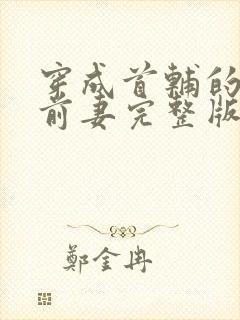 穿成首輔的
前妻完整版
鄭金冉